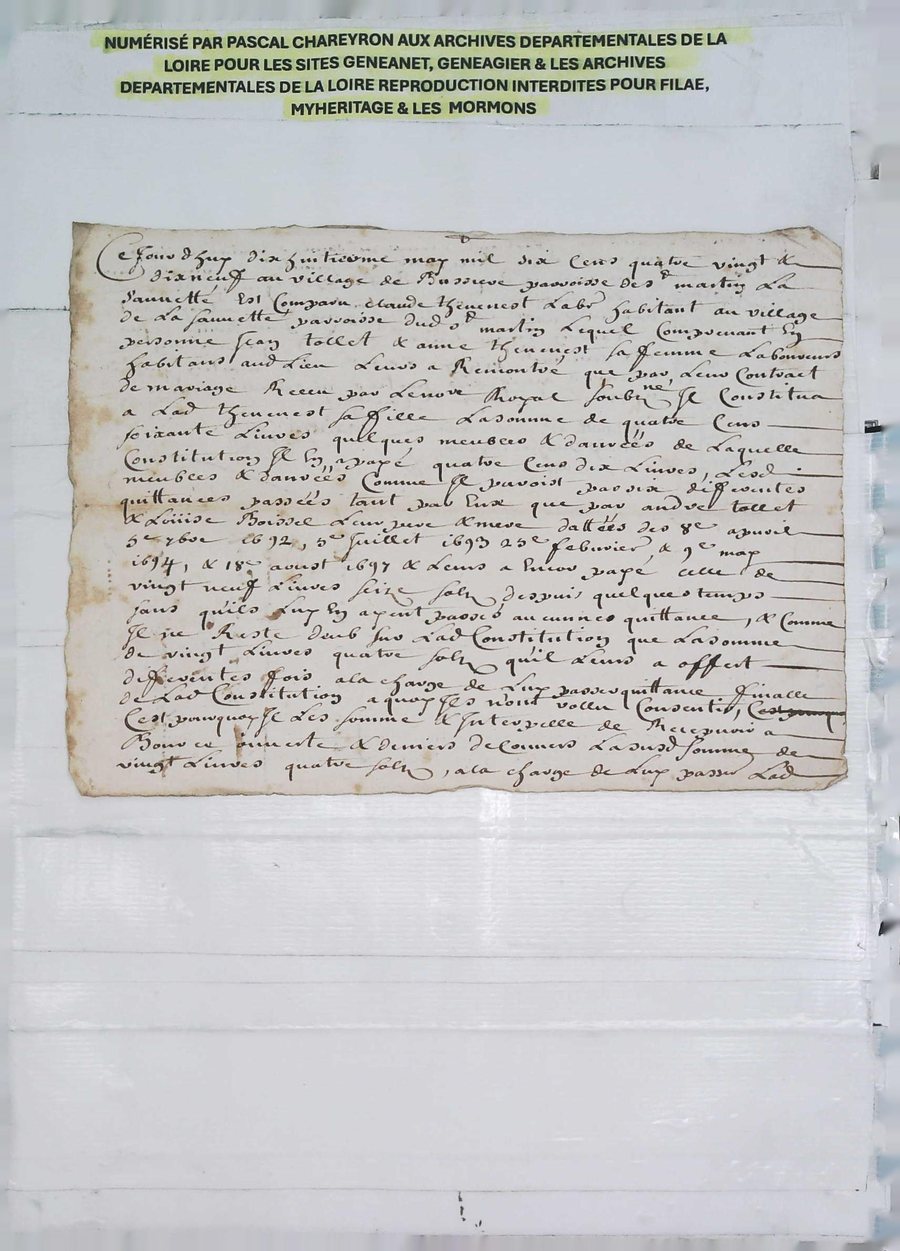 NUMÉRISÉ PAR PASCAL CHAREYRON AUX ARCHIVES DEPARTEMENTALES DE LA
LOIRE POUR LES SITES GENEANET, GENEAGIER & LES ARCHIVES
DEPARTEMENTALES DE LA LOIRE REPRODUCTION INTERDITES POUR FILAE,
MYHERITAGE & LES MORMONS
Ce Jourdhuy dixhuitiesme may mil six cens quatre vingt &
dixneuf au village de Bussiere parroisse de st martin La
Sauueté Est Comparu claude theuenest Labr habitant au village
de La Sauueté parroisse dud st martin Lequel Comprenant En
personne Jean tollet & anne theuenest sa femme Laboureurs
habitans aud Lieu Leurs a Remontré que par Leur Contract
de mariage Receu par Lenore Royal soubzne Il Constitua
a Lad theuenest sa fille Lasomme de quatre Cens
soixante Liures quelques meubles & danreés de Laquelle
Constitution Il En a payé quatre Cens dix Liures, Lesd
meubles & danreés Comme Il paroist par six differentes
quittances passeés tant par Eux que par andré tollet
& Louise Boissel Leur pere & mere dattées des 8e apuril
5e 7bre 1692, 5e Juillet 1693 23e februrier, & 9e may
1694, & 18e aoust 1697 & Leurs a Encor payé celle de
vingt neuf Liures seize solz despuis quelque temps
sans qu'ils Luy En ayent passés aucunnes quittance, & Comme
Il ne Reste deub sur Lad Constitution que Lasomme
de vingt Liures quatre solz qu'il Leurs a offert
differentes fois ala charge de Luy passer quittance finalle
de Lad Constitution aquoy Ils n'ont vollu Consentir,
C'est pourquoy Il Les somme & Interpelle de Recepuoir a
Bource ouuerte & deniers decouuers Lasusd somme de
vingt Liures quatre solz, ala charge de Luy passer Lad